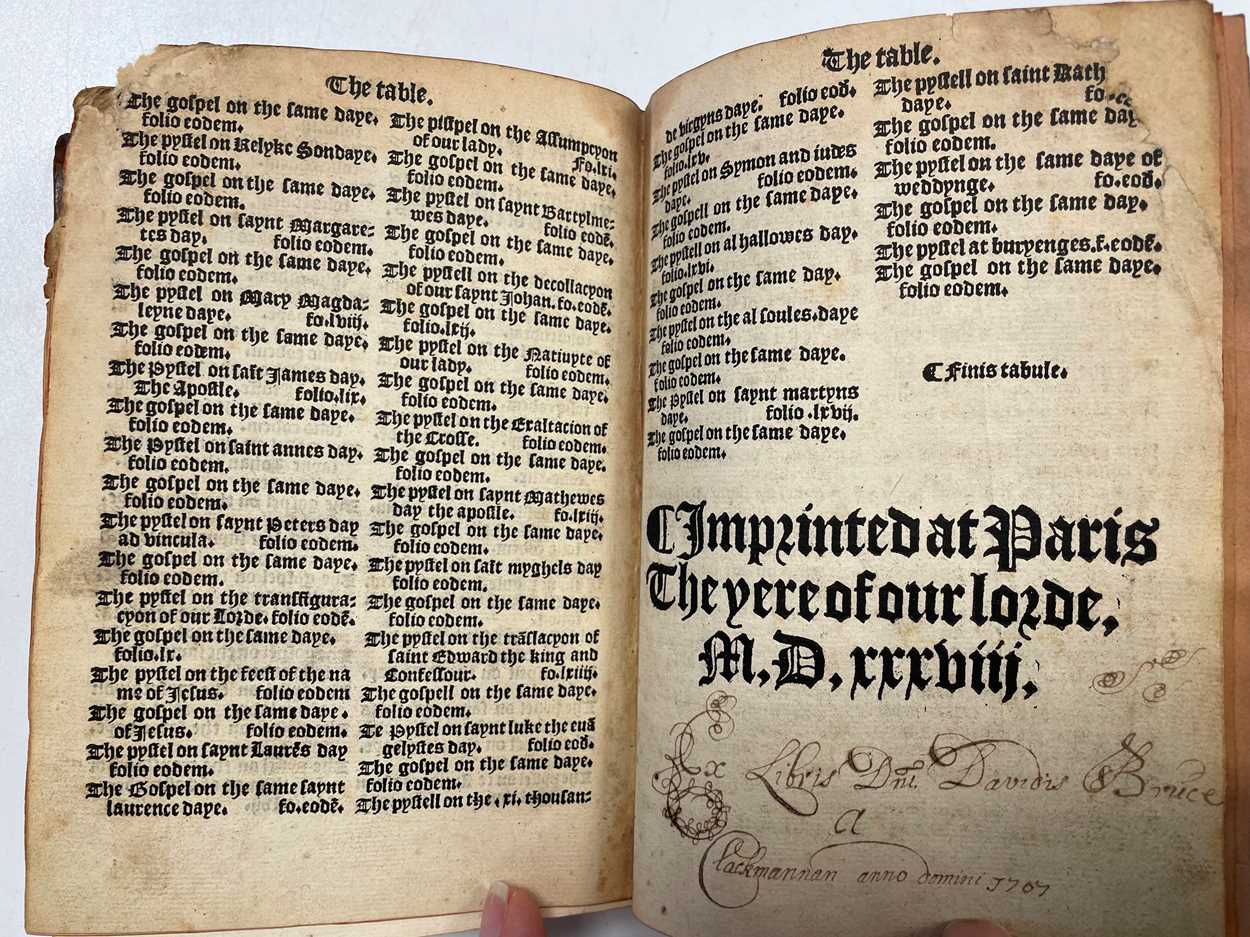 The table.
The gospel on the same daye.
folio eodem.
The pystel on Relyke Sondaye.
folio eodem.
The gospel on the same daye.
folio eodem.
The pystel on saynt Margare-
tes day. folio eodem.
The gospel on the same daye.
folio eodem.
The pystel on Mary Magda-
leyne daye. fo.lviij.
The gospel on the same daye.
folio eodem.
The Pystel on saīt James day.
The Apostle. folio.lix.
The gospel on the same daye.
folio eodem.
The Pystel on saint annes day.
folio eodem.
The gospel on the same daye.
folio eodem.
The pystel on saynt Peters day
ad vincula. folio eodem.
The gospel on the same daye.
folio eodem.
The pystel on the transfigura-
cyon of our Lorde. folio eodē.
The gospel on the same daye.
folio.lx.
The pystel on the feest of the na
me of Jesus. folio eodem
The gospel on the same daye.
of Jesus. folio eodem.
The pystel on saynt Laurēs day
folio eodem.
The Gospel on the same saynt
laurence daye. fo.eodē.
The pistpel on the Assumpcyon
of our lady. Fo.lxi.
The gospel on the same daye.
folio eodem.
The pystel on saynt Bartylme-
wes daye. folio eodē.
The gospel on the same daye.
folio eodem.
The pystell on the decollacyon
of our saynt Johan. fo.eodē.
The gospel on the same daye.
folio.lxij.
The pystel on the Natiuyte of
our lady. folio eodem.
The gospel on the same daye.
folio eodem.
The pystel on the Exaltacion of
the Crosse. folio eodem.
The gospel on the same daye.
folio eodem.
The pystel on saynt Mathewes
day the apostle. fo.lxiij.
The gospel on the same daye.
folio eodem.
The pystel on saīt myghels day
folio eodem.
The gospel on the same daye.
folio eodem.
The pystel on the trāslacyon of
saint Edward the king and
Confessour. fo.lxiiij.
The gospell on the same daye.
folio eodem.
Te Pystel on saynt luke the euā
gelystes day. folio eod.
The gospel on the same daye.
folio eodem.
The pystell on the .xi. thousan-
The table.
de virgyns daye. folio eod.
The gospel on the same daye.
folio.lxv.
The pystel on Symon and iudes
daye. folio eodem.
The gospell on the same daye.
folio eodem.
The pystell on al hallowes day.
folio.lxvi.
The gospel on the same day.
folio eodem.
The pystel on the al soules.daye
folio eodem.
The gospel on the same daye.
folio eodem.
The Pystel on saynt martyns
daye. folio .lxvij.
The gospel on the same daye.
folio eodem.
The pystell on saint Kath
daye. fo.
The gospel on the same day
folio eodem.
The pystel on the same daye of
weddynge. fo.eod.
The gospel on the same day.
folio eodem.
The pystel at buryenges.f.eodē.
The gospel on the same daye.
folio eodem.
¶ Finis tabule.
¶ Imprinted at Paris
The yere of our lorde,
M.D.xxxviij.
Ex Libris Dni. Davidis Bruce
a
Clackmannan anno domini 1707